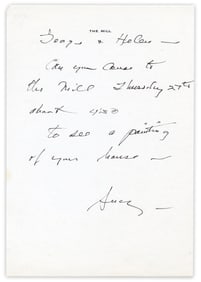 THE MILL
& Helen —
Can you come to
the Mill Thursday 27th
about 4:30
to see a painting
of your house —